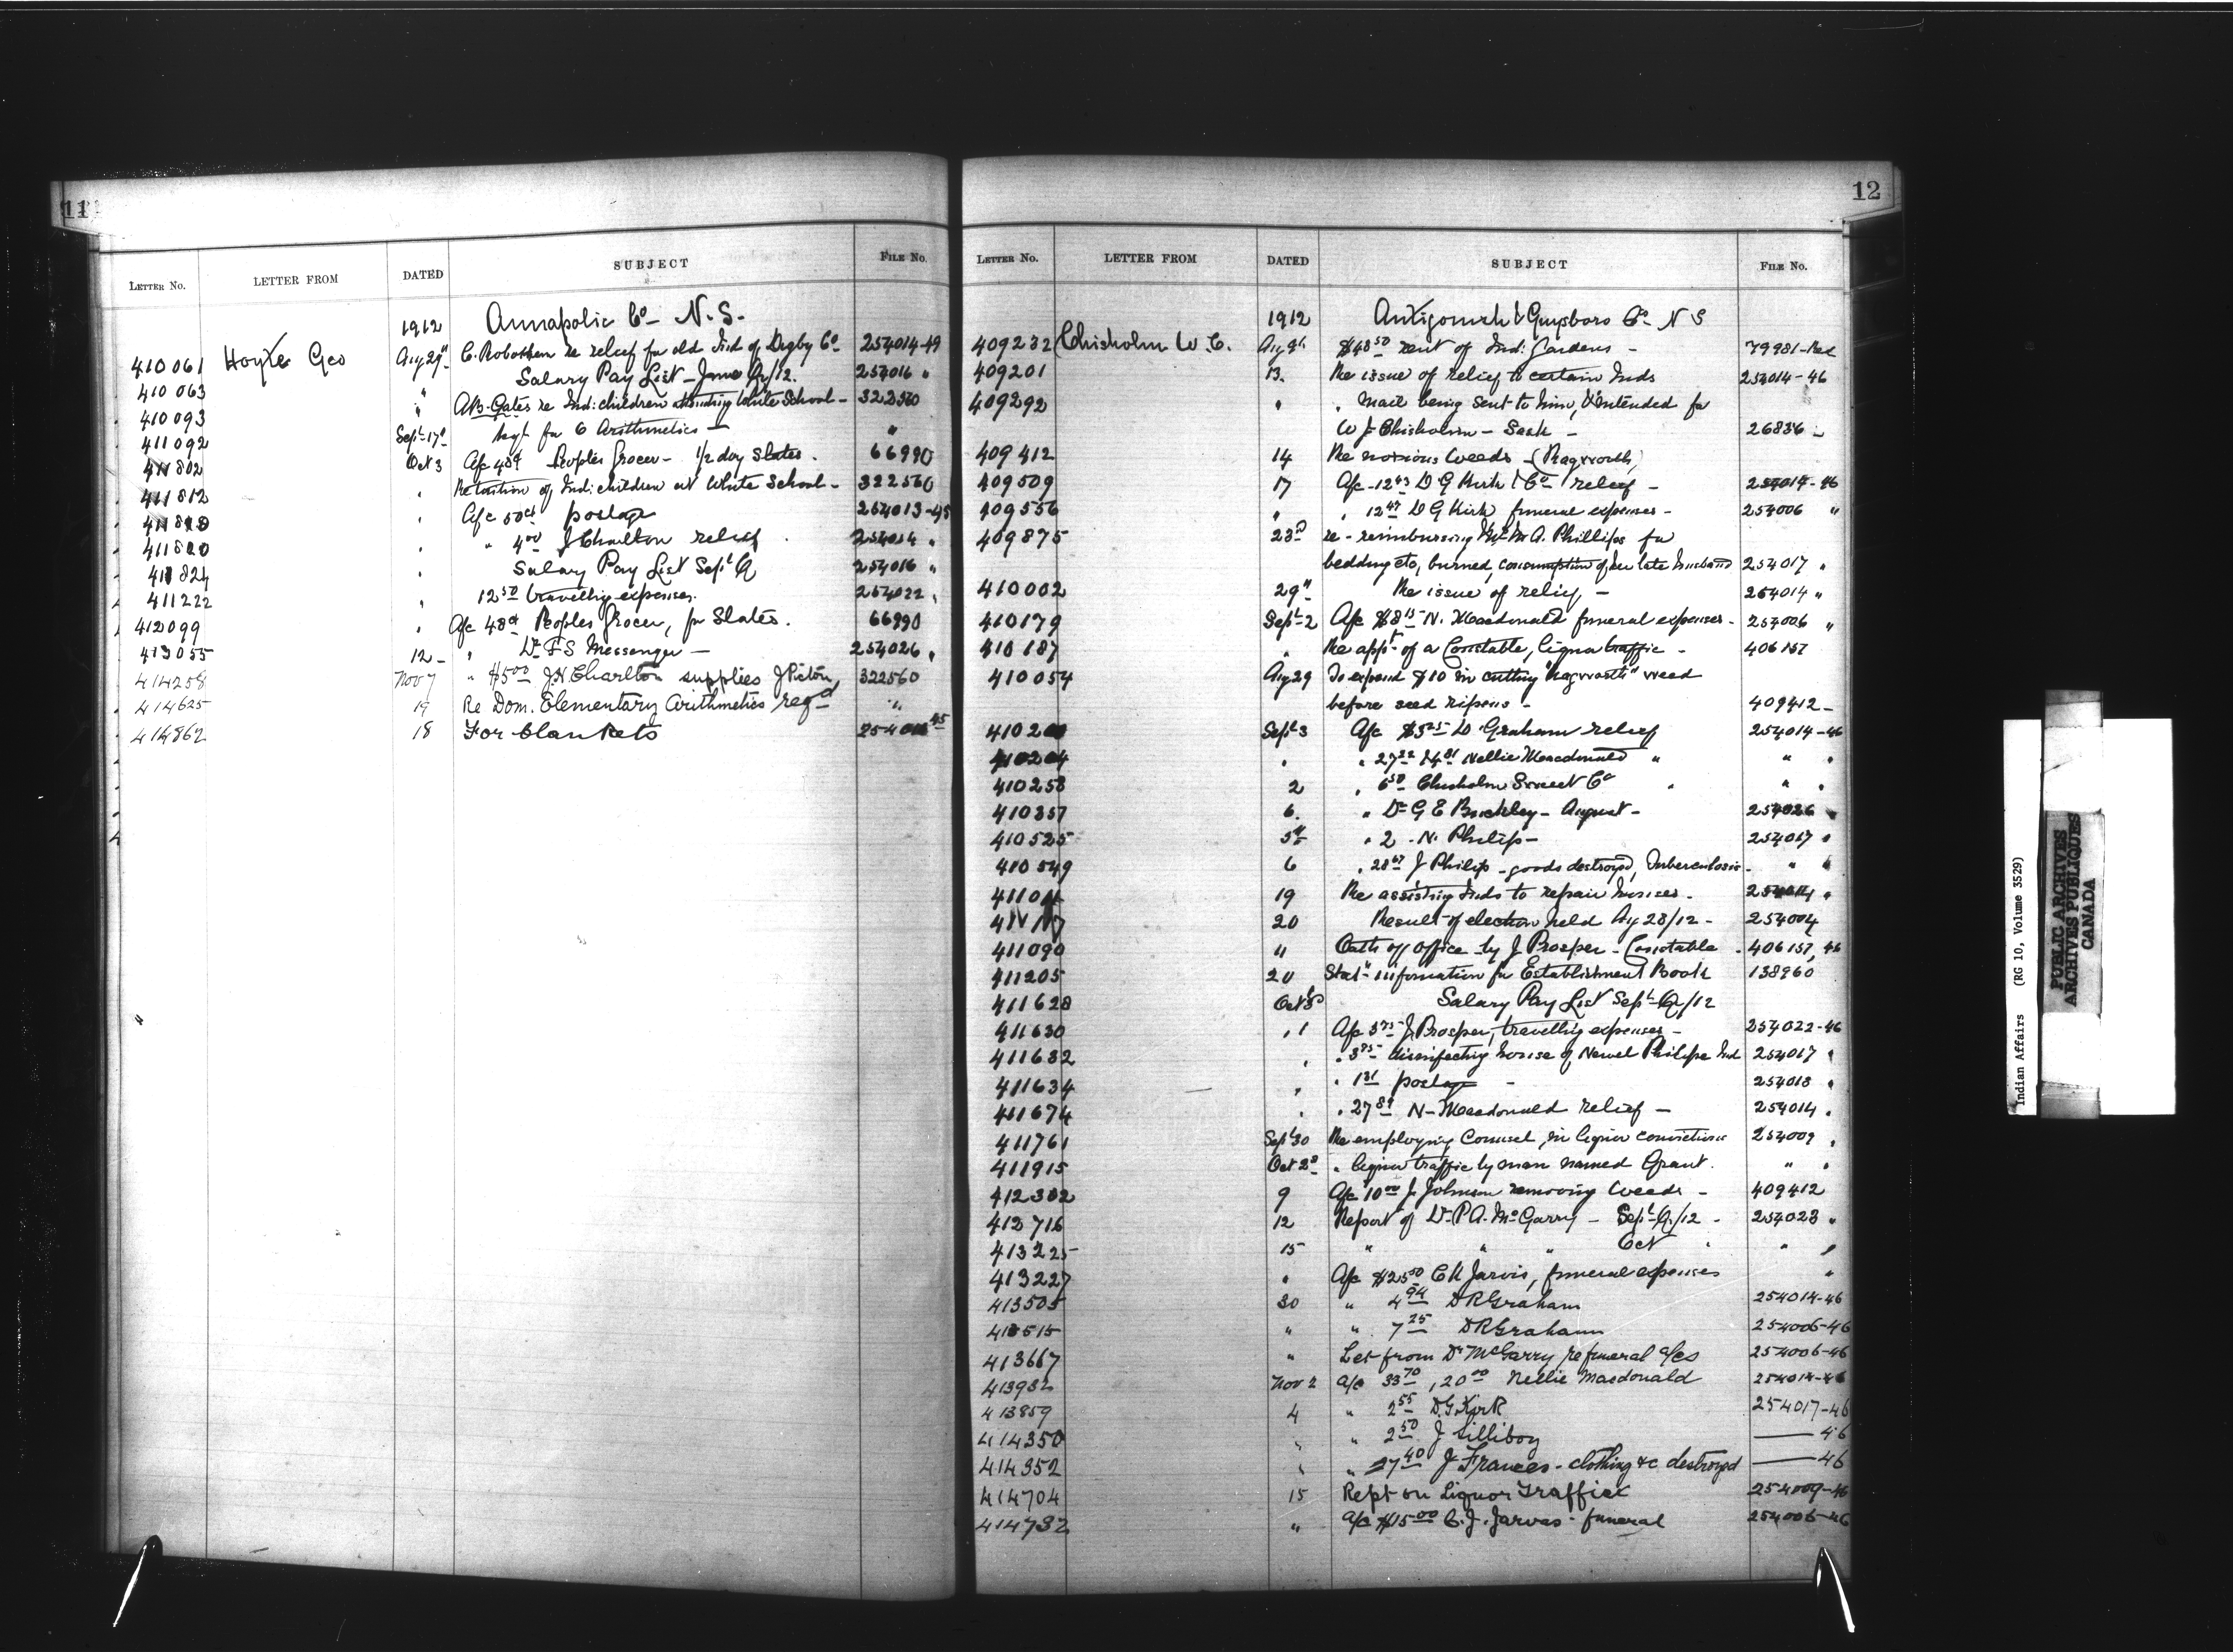 11
LETTER No. LETTER FROM DATED SUBJECT FILE No.
1912 Annapolis Co- N.S.
410061 Hoyte Geo Aug 29" C. Robottom re relief for old Ind of Digby Co- 254014-49
410063 " Salary Pay List - June Qr/12. 254016 "
410093 " A.B. Gates re Ind: children attending White School - 322560
411092 Sept 17 for 6 Arithmetics - "
411802 Oct 3 A/c 48¢ Peoples Grocer - 1/2 doz slates. 66990
411812 " Re tuition of Ind: children at White School - 322560
" A/c 50ct postage 254013-45
411820 " " 4.00 J Charlton relief 254014 "
" Salary Pay List Sept Q 254016 "
411222 " 12.50 travelling expenses. 254022 "
412099 " A/c 48ct Peoples Grocer, for Slates. 66990
413055 12 - " Dr F S Messenger - 254026 "
414258 Nov 7 " $5.00 J.H. Charlton supplies J Pictou, 322560
414625 19 Re Dom. Elementary Arithmetics reqd "
414862 18 For blankets 45
12
LETTER No. LETTER FROM DATED SUBJECT FILE No.
1912 Antigonish & Guysboro Co- N S
409232 Chisholm W. C. Aug 9 $48.50 rent of Ind: Gardens - 79981-
409201 13. Re issue of relief to certain Inds 254014-46
409292 " " mail being sent to him, & intended for
W J Chisholm - Sask - 26836 -
409412 14 Re noxious weeds - (Ragworth)
409509 17 A/c - 12.43 D G Kirk & Co- relief - 254014-46
409556 " " 12.47 D G Kirk funeral expenses - 254006 "
409875 23rd re - reimbursing Mrs M A. Phillips for
bedding etc, burned, consumption of her late husband 254017 "
410002 29" Re issue of relief - 254014 "
410179 Sept 2 A/c $8.15 N. Macdonald funeral expenses - 254006 "
410187 " Re appt of a Constable, liquor traffic - 406157
410054 Aug 29 To expend $10 in cutting "Ragworth" weed
before seed ripens - 409412 -
Sept 3 A/c $5.25 D Graham relief 254014-46
410204 " " 27.22 14.81 Nellie Macdonald " " "
410258 2 " 6.50 Chisholm Sweet Co " " "
410357 6. " Dr G E Buckley - August - 254026 "
410525 5th " 2 - N. Philip - 254017 "
410549 6 " 28.67 J Philip - goods destroyed, Tuberculosis - " "
19 Re assisting Inds to repair houses - 254014 "
20 Result of election held Aug 28/12 - 254004
411090 " Oath of office by J Prosper - Constable - 406157, 46
411205 20 Stat- information for Establishment Book 138960
411628 Oct Salary Pay List Sept Qr/12
411630 " 1 A/c 3.75 J. Prosper, travelling expenses - 254022-46
411632 " " 3.95 disinfecting house of Newel Philips Ind 254017 "
411634 " " 1.31 postage - 254013 "
411674 " " 27.89 N- Macdonald relief - 254014 "
411761 Sept 30 Re employing Counsel, in liquor convictions 254009 "
411915 Oct 2 " liquor traffic by man named Grant. " "
412302 9 A/c 10.00 J. Johnson removing weeds - 409412
412716 12 Report of Dr P A. McGarry - Sept Q/12 - 254023 "
413225 15 " " " Oct " " "
413227 " A/c $25.50 C H Jarvis, funeral expenses "
413505 30 " 4.94 D R Graham 254014-46
413515 " " 7.25 D R Graham 254006-46
413667 " Let from Dr McGarry re funeral a/cs 254006-46
413932 Nov 2 a/c 33.70, 20.00 Nellie Macdonald 254014-46
413859 4 " 2.55 D. G Kirk 254017-46
414350 " " 2.50 J Silliboy —— 46
414352 " " 27.40 J Frances - clothing &c destroyed —— 46
414704 15 Rept on Liquor Traffick 254009-46
414732 " a/c $15.00 C. J. Jarvas - funeral 254006-46
Indian Affairs (RG 10, Volume 3529)
PUBLIC ARCHIVES
ARCHIVES PUBLIQUES
CANADA